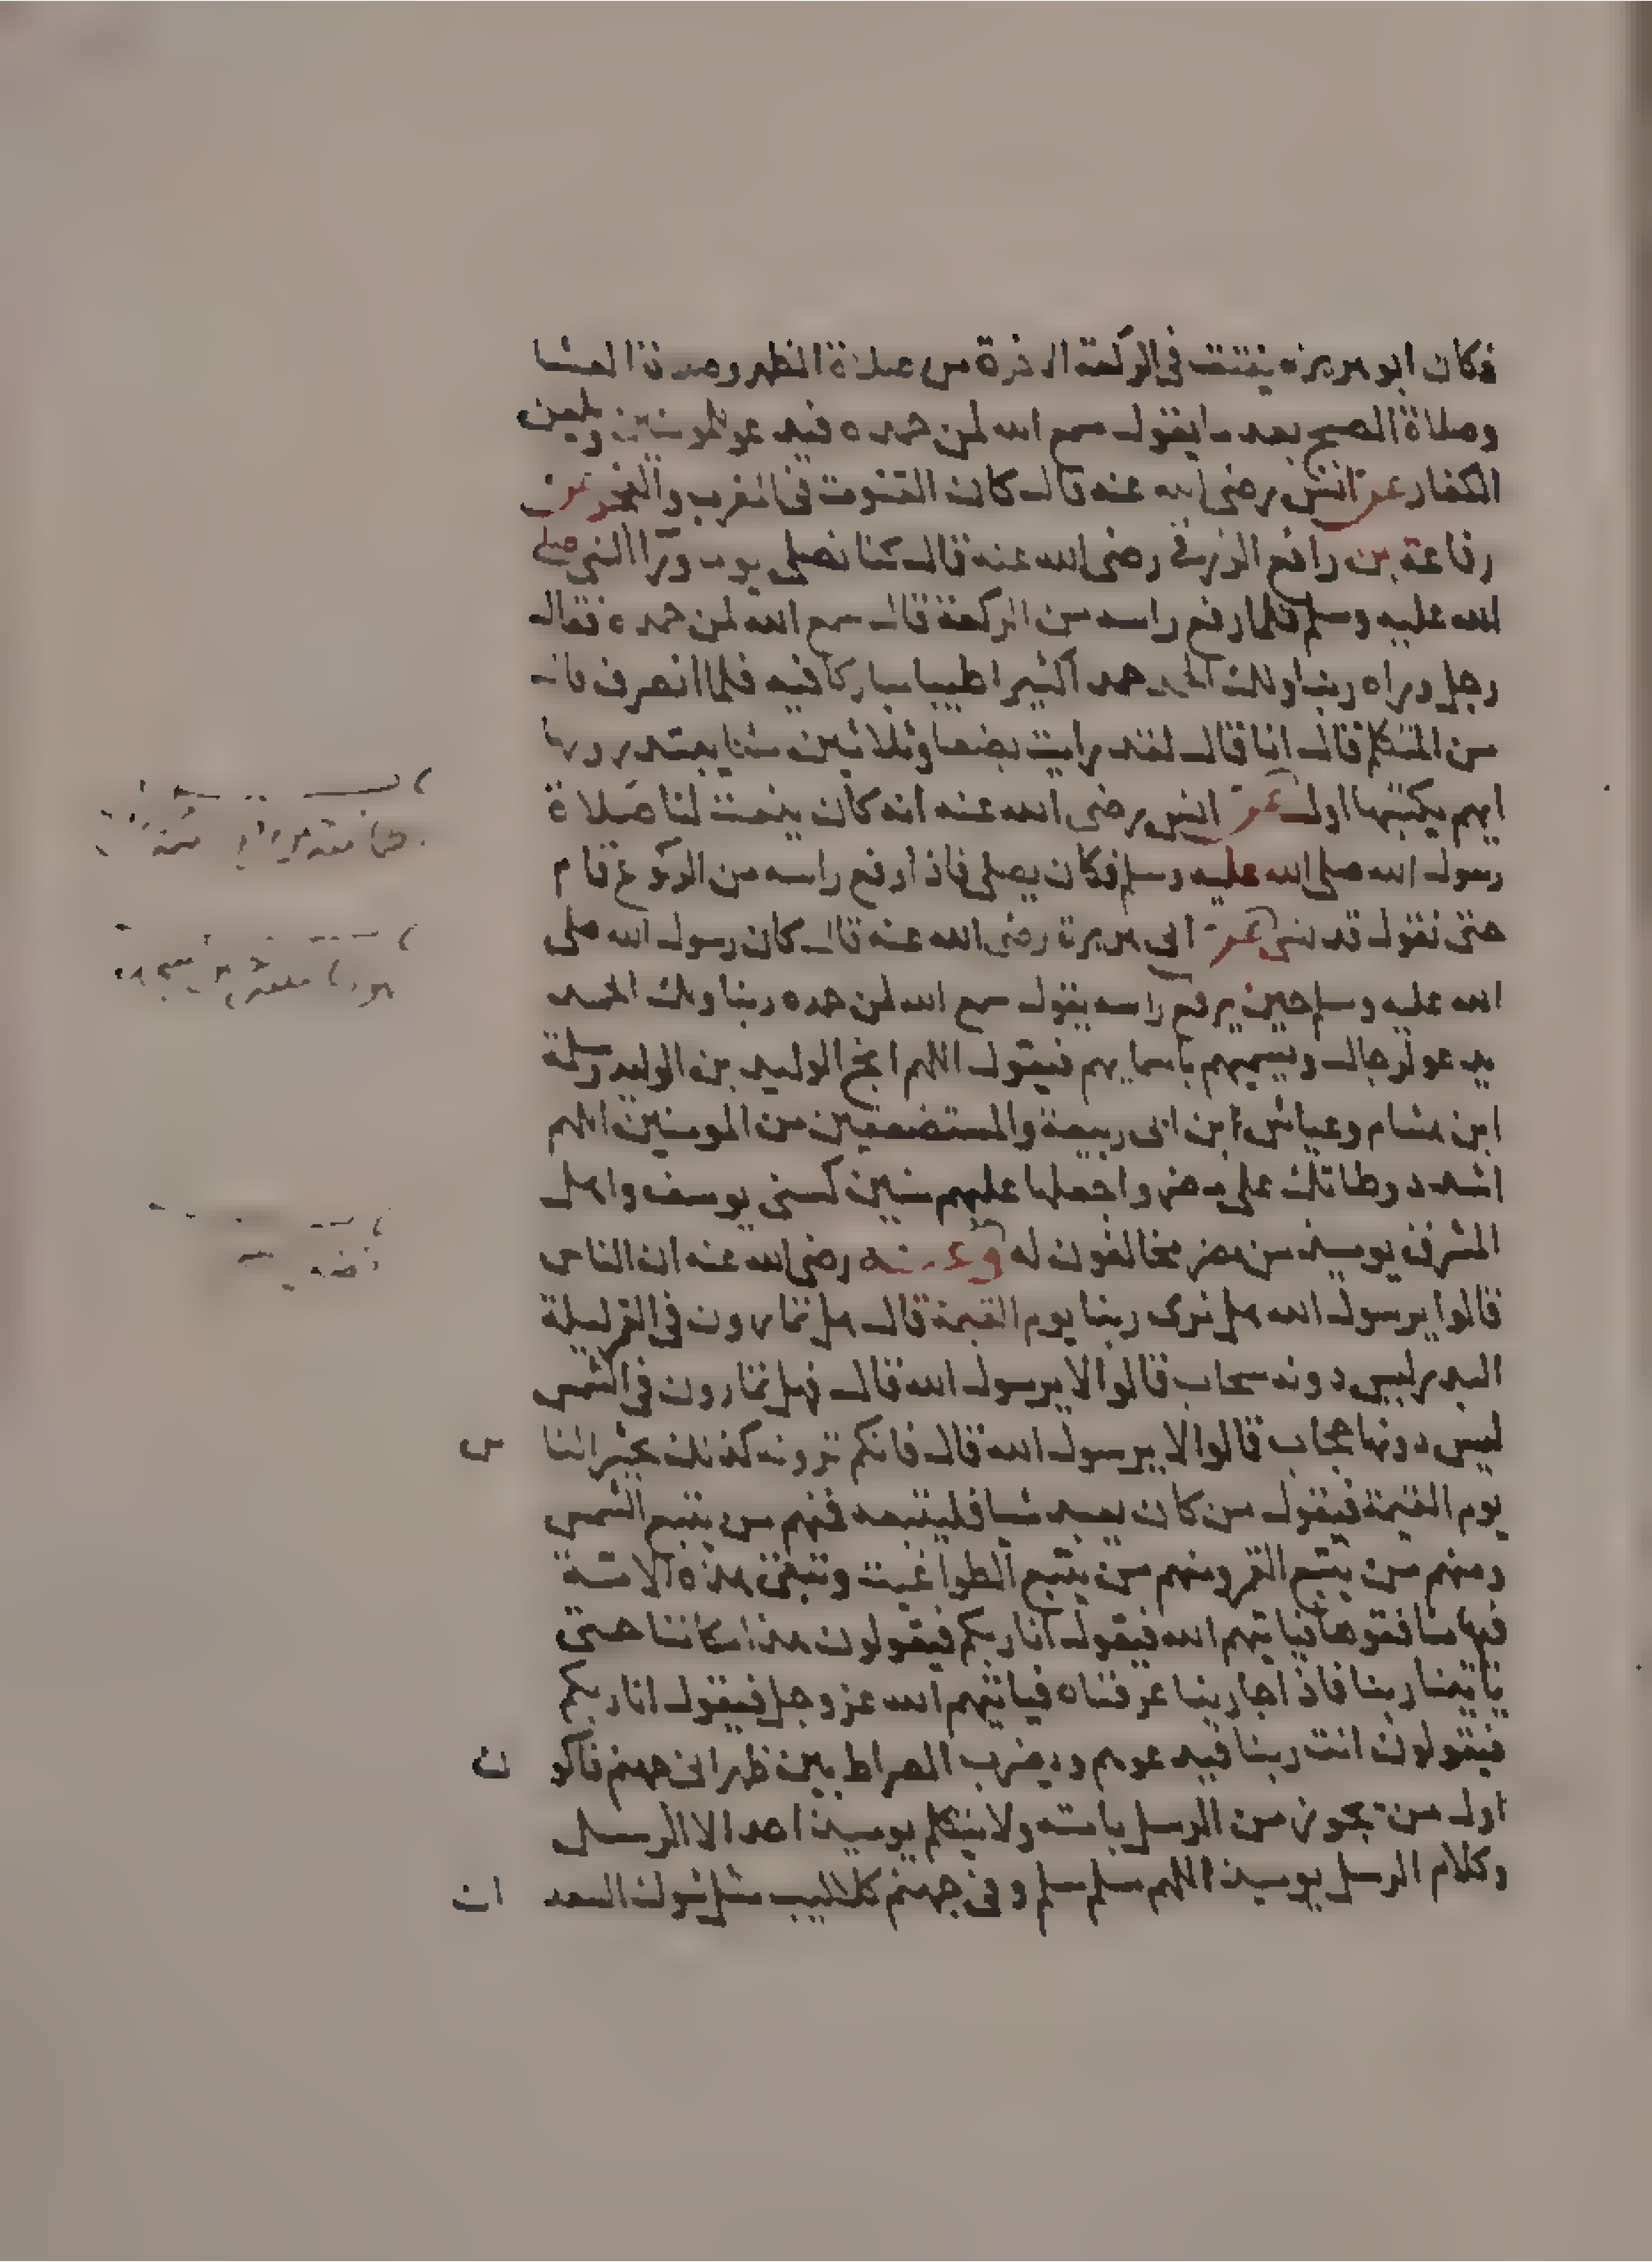 فكان ابو هريرة يقنت في الركعة الاخرة من صلاة الظهر وصلاة العشا
وصلاة الصبح بعد ما يقول سمع الله لمن حمده فيدعو للمومنين ويلعن
الكفار عن انس رضى الله عنه قال كان القنوت في المغرب والفجر عن
رفاعة بن رافع الزرقي رضى الله عنه قال كنا نصلي يوما ورا النبي صلى
الله عليه وسلم فلما رفع راسه من الركعة قال سمع الله لمن حمده فقال
رجل وراه ربنا ولك الحمد حمدا كثيرا طيبا مباركا فيه فلما انصرف قال
من المتكلم قال انا قال لقد رايت بضعا وثلاثين ملكا يبتدرونها
ايهم يكتبها اول عن انس رضى الله عنه انه كان ينعت لنا صلاة
رسول الله صلى الله عليه وسلم فكان يصلى فاذا رفع راسه من الركوع قام
حتى نقول قد نسي عن ابى هريرة رضى الله عنه قال كان رسول الله صلى
الله عليه وسلم حين يرفع راسه يقول سمع الله لمن حمده ربنا ولك الحمد
يدعو لرجال ويسميهم باسمايهم فيقول اللهم انج الوليد بن الوليد وسلمة
ابن هشام وعياش ابن ابى ربيعة والمستضعفين من المومنين اللهم
اشدد وطاتك على مضر واجعلها عليهم سنين كسنى يوسف واهل
المشرق يوميذ من مضر مخالفون له وعنه رضى الله عنه ان الناس
قالوا يرسول الله هل نرى ربنا يوم القيمة قال هل تمارون في القمر ليلة
البدر ليس دونه سحاب قالوا لا يرسول الله قال فهل تمارون في الشمس
ليس دونها حجاب قالوا لا يرسول الله قال فانكم ترونه كذلك يحشر النا س
يوم القيمة فيقول من كان يعبد شيا فليتبعه فمنهم من يتبع الشمس
ومنهم من يتبع القمر ومنهم من يتبع الطواغيت وتبقى هذه الامة
فيها منافقوها فياتيهم الله فيقول انا ربكم فيقولون هذا مكاننا حتى
ياتينا ربنا فاذا جا ربنا عرفناه فياتيهم الله عز وجل فيقول انا ربكم
فيقولون انت ربنا فيدعوهم ويضرب الصراط بين ظهرانى جهنم فاكو ن
اول من يجوز من الرسل بامته ولا يتكلم يوميذ احد الا الرسل
وكلام الرسل يوميذ اللهم سلم سلم وفى جهنم كلاليب مثل شوك السعد ان